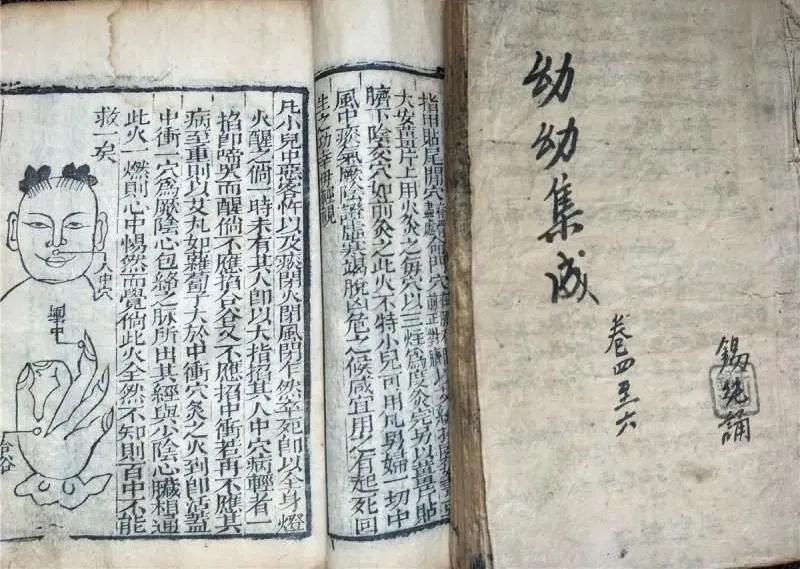 幼幼集成
卷四至六
錫純誦
指甲貼尾閭穴
大安薑片上用火灸之每穴以三炷為度灸完另以薑片貼
臍下陰交穴如前灸之此火不特小兒可用凡男婦一切中
風中痰氣厥陰證虛寒竭脫凶危之候咸宜用之有起死回
生之功幸毋輕視
凡小兒中惡客忤以及痰閉火閉風閉乍然卒死即以全身燈
火醒之倘一時未有其人即以大指掐其人中穴病輕者一
掐即啼哭而醒倘不應掐合谷又不應掐中衝若再不應其
病至重則以艾丸如蘿蔔子大於中衝穴灸之火到即活蓋
中衝一穴為厥陰心包絡之脈所出其經與少陰心臟相通
此火一燃則心中惕然而覺倘此火全然不知則百中不能
救一矣
人中穴
中衝
合谷